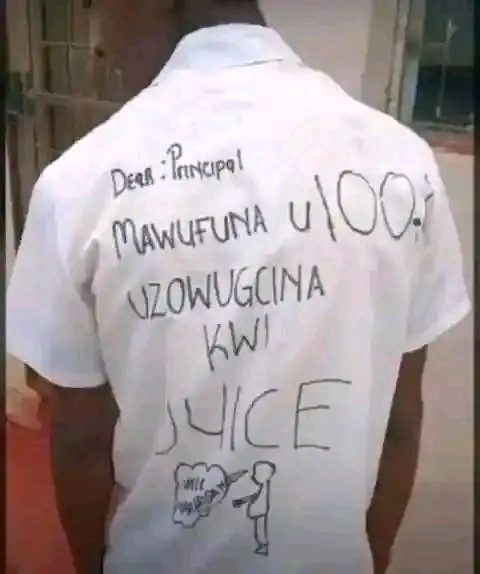 Dear: Principal
MAWUFUNA U 100%
UZOWUGCINA
KWI
JUICE